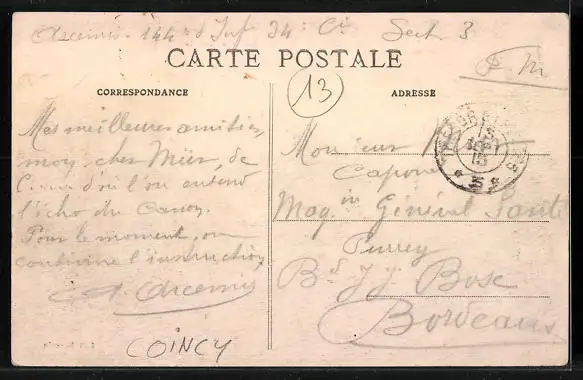 Arcemis - 144e d'Inf 34e Cie Sect. 3
CARTE POSTALE
F M
CORRESPONDANCE
13
ADRESSE
Mes meilleures amitiés,
moy cher de
d'où l'on entend
l'écho du canon.
Pour le moment, on
continue l'instruction
Arcemis
COINCY
Monsieur
Capone
Mag in Général Santé
Purrey
Bd J.J. Bosc
Bordeaux
15
3